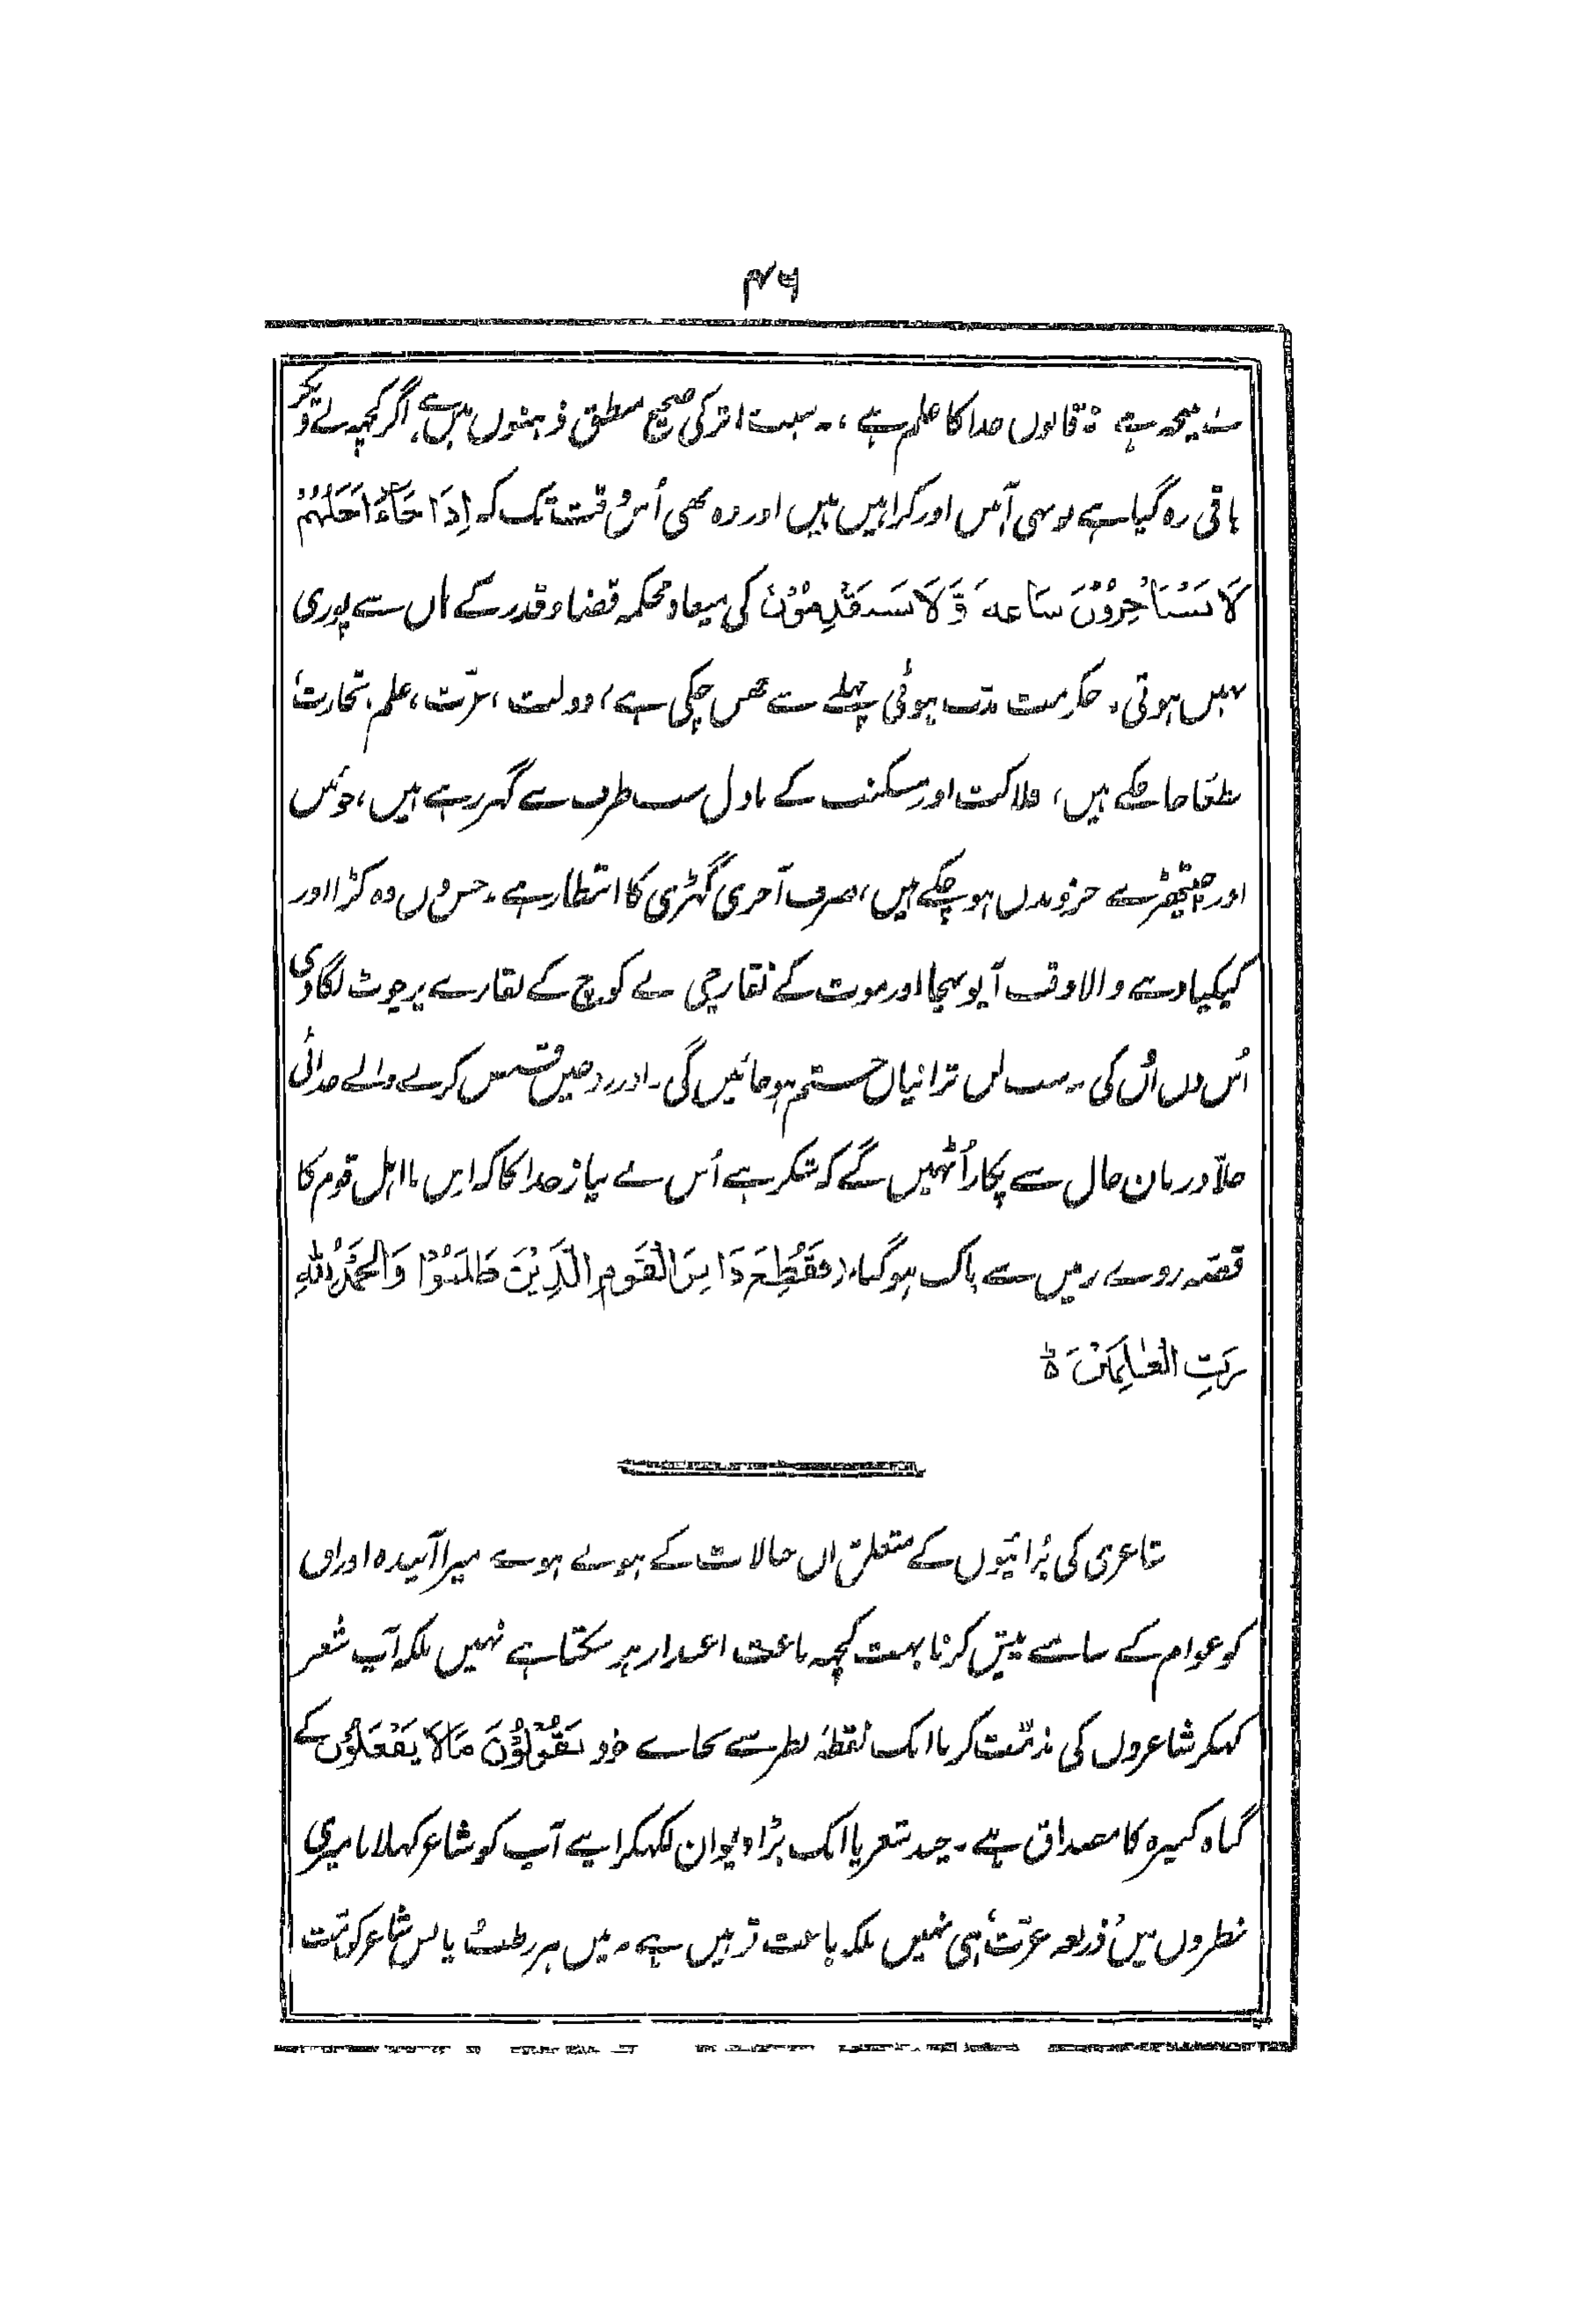 ۴۶
نتیجہ ہے نہ قانون خدا کا علم ہے، نہ سبب اثر کی صحیح منطق ذہنوں میں ہے، اگر کچھ لے دیکر
باقی رہ گیا ہے تو یہی آہیں اور کراہیں ہیں اور وہ بھی اُس وقت تک کہ اِذَا جَآءَ اَجَلُهُمْ
لَا يَسْتَاْخِرُوْنَ سَاعَةً وَّلَا يَسْتَقْدِمُوْنَ کی میعاد محکمہ قضا و قدر کے ہاں سے پوری
نہیں ہوتی۔ حکومت مدت ہوئی پہلے سے چھن چکی ہے، دولت، عزّت، علم، تجارت
سلفا جا چکے ہیں، فلاکت اور مسکنت کے بادل سب طرف سے گہر رہے ہیں، جوئیں
اور چیتھڑے جزو بدن ہو چکے ہیں، صرف آخری گہڑی کا انتظار ہے۔ جس دن وہ کڑا اور
کپکپا دینے والا وقت آپہونچا اور موت کے نقارچی نے کوچ کے نقارے پر چوٹ لگا دی
اُس دن اُن کی یہ سب لن ترانیاں ختم ہو جائیں گی۔ اور زمین تقسیم کرنے والے خدائی
جلاد زبان حال سے پکار اُٹہیں گے کہ شکر ہے اُس بے نیاز خدا کا کہ اس نااہل قوم کا
قصّہ روے زمین سے پاک ہو گیا، (فَقُطِعَ دَابِرُ الْقَوْمِ الَّذِيْنَ ظَلَمُوْا وَالْحَمْدُ لِلّٰهِ
رَبِّ الْعٰلَمِيْنَ ۃ
شاعری کی بُرائیوں کے متعلق ان حالات کے ہوتے ہوے میرا آئیندہ اوراق
کو عوام کے سامنے پیش کرنا بہت کچھ باعث اعتذار ہو سکتا ہے نہیں بلکہ آپ شعر
کہکر شاعروں کی مذمّت کرنا ایک نقطۂ نظر سے بجاے خود يَقُوْلُوْنَ مَالَا يَفْعَلُوْنَ کے
گناہ کبیرہ کا مصداق ہے۔ چند شعر یا ایک بڑا دیوان لکہکر اپنے آپ کو شاعر کہلانا میری
نظروں میں ذریعہ عزّت ہی نہیں بلکہ باعث توہین ہے۔ میں ہر رطب یابس شاعر کو اُمّت